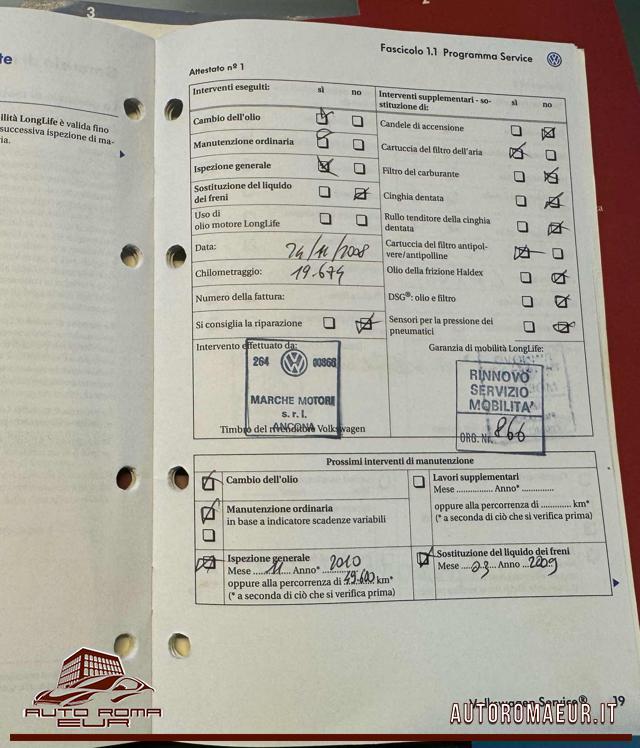 3
te
ilità LongLife è valida fino
successiva ispezione di ma-
ria.
Fascicolo 1.1 Programma Service
Attestato nº 1
Interventi eseguiti: sì no
Cambio dell'olio
Manutenzione ordinaria
Ispezione generale
Sostituzione del liquido
dei freni
Uso di
olio motore LongLife
Data: 24/11/2008
Chilometraggio: 19.674
Numero della fattura:
Si consiglia la riparazione
Intervento effettuato da:
264 00866
MARCHE MOTORI
s.r.l.
ANCONA
Timbro del rivenditore Volkswagen
Interventi supplementari - so-
stituzione di: sì no
Candele di accensione
Cartuccia del filtro dell'aria
Filtro del carburante
Cinghia dentata
Rullo tenditore della cinghia
dentata
Cartuccia del filtro antipol-
vere/antipolline
Olio della frizione Haldex
DSG®: olio e filtro
Sensori per la pressione dei
pneumatici
Garanzia di mobilità LongLife:
RINNOVO
SERVIZIO
MOBILITA'
ORG. Nr. 866
Prossimi interventi di manutenzione
Cambio dell'olio
Manutenzione ordinaria
in base a indicatore scadenze variabili
Ispezione generale
Mese .....11.... Anno* .2010
oppure alla percorrenza di 49.600 km*
(* a seconda di ciò che si verifica prima)
Lavori supplementari
Mese ............... Anno* .............
oppure alla percorrenza di ............ km*
(* a seconda di ciò che si verifica prima)
Sostituzione del liquido dei freni
Mese ....03.... Anno ..2009
Volkswagen Service® 19
AUTO ROMA
EUR
AUTOROMAEUR.IT